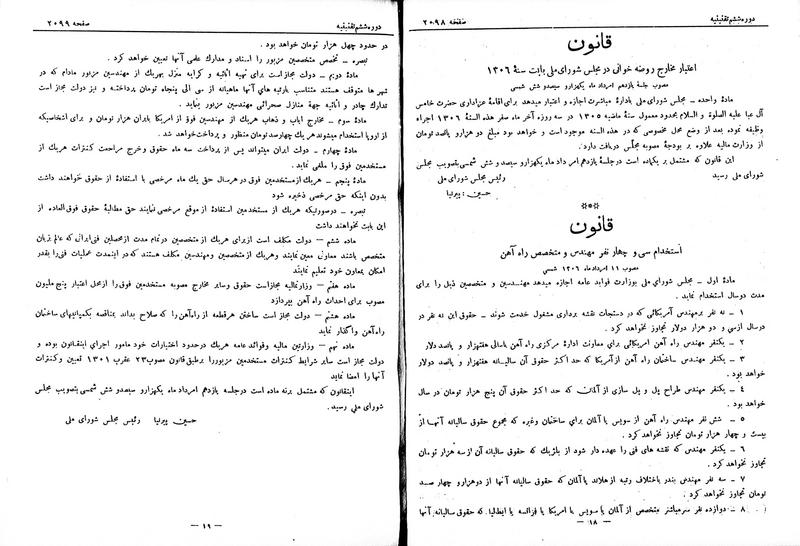 دوره ششم تقنینیه
صفحه ۲۰۹۸
قانون
اعتبار مخارج روضه خوانی در مجلس شورای ملی بابت سنهٔ ۱۳۰۶
مصوب جلسه یازدهم امرداد ماه یکهزار و سیصد و شش شمسی
مادهٔ واحده ـ مجلس شورای ملی بادارهٔ مباشرت اجازه و اعتبار میدهد برای اقامهٔ عزاداری حضرت خامس
آل عبا علیه الصلوة و السلام بحدود معمول سنهٔ ماضیه ۱۳۰۵ در سه روزه آخر ماه صفر هذه السنهٔ ۱۳۰۶ اجراء
وظیفه نموده بعد از وضع محل مخصوصی که در هذه السنه موجود است و خواهد بود مبلغ دو هزار و پانصد تومان
از وزارت مالیه علاوه بر بودجهٔ مصوبه مجلس دریافت دارد.
این قانون که مشتمل بر یکماده است در جلسهٔ یازدهم امرداد ماه یکهزار و سیصد و شش شمسی بتصویب مجلس
شورای ملی رسید
رئیس مجلس شورای ملی
حسین پیرنیا
قانون
استخدام سی و چهار نفر مهندس و متخصص راه آهن
مصوب ۱۱ امرداد ماه ۱۳۰۶ شمسی
مادهٔ اول ـ مجلس شورای ملی بوزارت فوائد عامه اجازه میدهد مهندسین و متخصصین ذیل را برای
مدت دو سال استخدام نماید.
۱ ـ نه نفر مهندس آمریکائی که در دستجات نقشه برداری مشغول خدمت شوند ـ حقوق این نه نفر در
دو سال از سی و دو هزار دولار تجاوز نخواهد کرد.
۲ ـ یکنفر مهندس راه آهن امریکائی برای معاونت ادارهٔ مرکزی راه آهن باسالی هفتهزار و پانصد دولار
۳ ـ یکنفر مهندس ساختمان راه آهن از آمریکا که حد اکثر حقوق آن سالیانه هفتهزار و پانصد دولار
خواهد بود.
۴ ـ یکنفر مهندس طراح پل و پل سازی از آلمان که حد اکثر حقوق آن پنج هزار تومان در سال
خواهد بود.
۵ ـ شش نفر مهندس راه آهن از سویس یا آلمان برای ساختمان وغیره که مجموع حقوق سالیانه آنها از
بیست و چهار هزار تومان تجاوز نخواهد کرد.
۶ ـ یکنفر مهندس که نقشه های فنی را عهده دار شود از بلژیک که حقوق سالیانه آن از سه هزار تومان
تجاوز نخواهد کرد.
۷ ـ سه نفر مهندس بندر باختلاف رتبه از هلاند یا آلمان که حقوق سالیانه آنها از دوهزار و چهار صد
تومان تجاوز نخواهد کرد.
۸ ـ دوازده نفر سرمباشر متخصص از آلمان یا سویس یا امریکا یا فرانسه یا ایطالیا که حقوق سالیانه آنها
ـ ۱۸ ـ
دوره ششم تقنینیه
صفحه ۲۰۹۹
در حدود چهل هزار تومان خواهد بود.
تبصره ـ تخصص متخصصین مزبور را اسناد و مدارک علمی آنها تعیین خواهد کرد.
مادهٔ دوم ـ دولت مجاز است برای تهیه اثاثیه و کرایه منزل بهریک از مهندسین مزبور مادام که در
شهر ها متوقف هستند متناسب بارتبه های آنها ماهیانه از سی الی پنجاه تومان پرداخته و نیز دولت مجاز است
تدارک چادر و اثاثیه جهة منازل صحرائی مهندسین مزبور بنماید.
مادهٔ سوم ـ مخارج ایاب و ذهاب هریک از مهندسین فوق از امریکا بایران هزار تومان و برای اشخاصیکه
از اروپا استخدام میشوند هریک چهارصد تومان منظور و پرداخت خواهد شد.
مادهٔ چهارم ـ دولت ایران میتواند پس از پرداخت سه ماه حقوق وخرج مراجعت کنترات هریک از
مستخدمین فوق را ملغی نماید.
مادهٔ پنجم ـ هریک از مستخدمین فوق در هر سال حق یک ماه مرخصی با استفادهٔ از حقوق خواهند داشت
بدون اینکه حق مرخصی ذخیره شود
تبصره ـ در صورتیکه هریک از مستخدمین استفادهٔ از موقع مرخصی ننمایند حق مطالبهٔ حقوق فوق العاده از
این بابت نخواهند داشت
ماده ششم ـ دولت مکلف است از برای هریک از متخصصین در تمام مدت از محصلین فنی ایرانی که عالم بزبان
متخصص باشند معاونی معین نمایند و هریک از متخصصین و مهندسین مکلف هستند که در اینمدت عملیات فنی را بقدر
امکان بمعاون خود تعلیم نمایند
ماده هفتم ـ وزارتمالیه مجاز است حقوق وسایر مخارج مصوبه مستخدمین فوق را از محل اعتبار پنج ملیون
مصوب برای احداث راه آهن بپردازد
ماده هشتم ـ دولت مجاز است ساختن هرقطعه از راه آهن را که صلاح بداند بمناقصه بکمپانیهای ساختمان
راه آهن واگذار نماید
ماده نهم ـ وزارتین مالیه و فوائد عامه هریک در حدود اختیارات خود مامور اجرای اینقانون بوده و
دولت مجاز است سایر شرایط کنترات مستخدمین مزبور را بر طبق قانون مصوب ۲۳ عقرب ۱۳۰۱ تعیین وکنترات
آنها را امضا نماید
اینقانون که مشتمل برنه ماده است در جلسه یازدهم امرداد ماه یکهزار و سیصد و شش شمسی بتصویب مجلس
شورای ملی رسید.
رئیس مجلس شورای ملی
حسین پیرنیا
ـ ۱۹ ـ